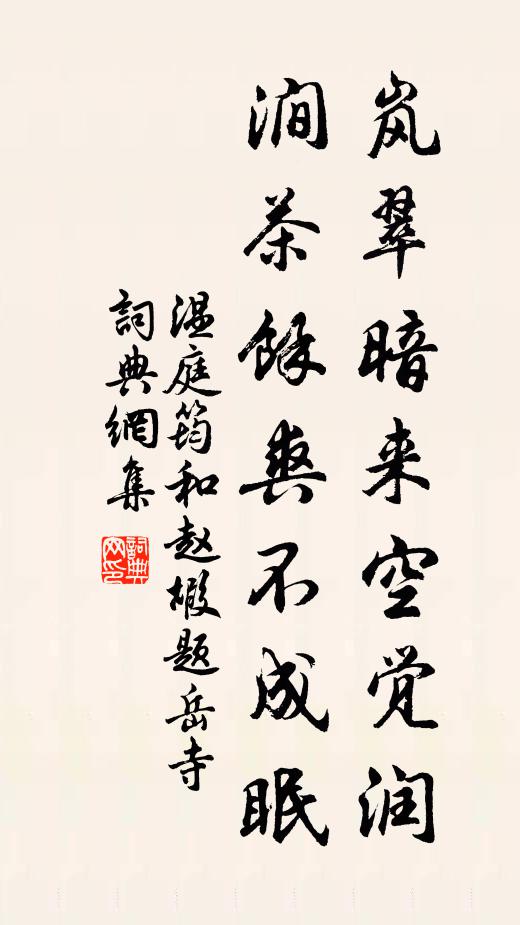 岚翠暗来空觉润
澗茶餘爽不成眠
温庭筠和赵嘏题岳寺
詞典網集
詞典网印